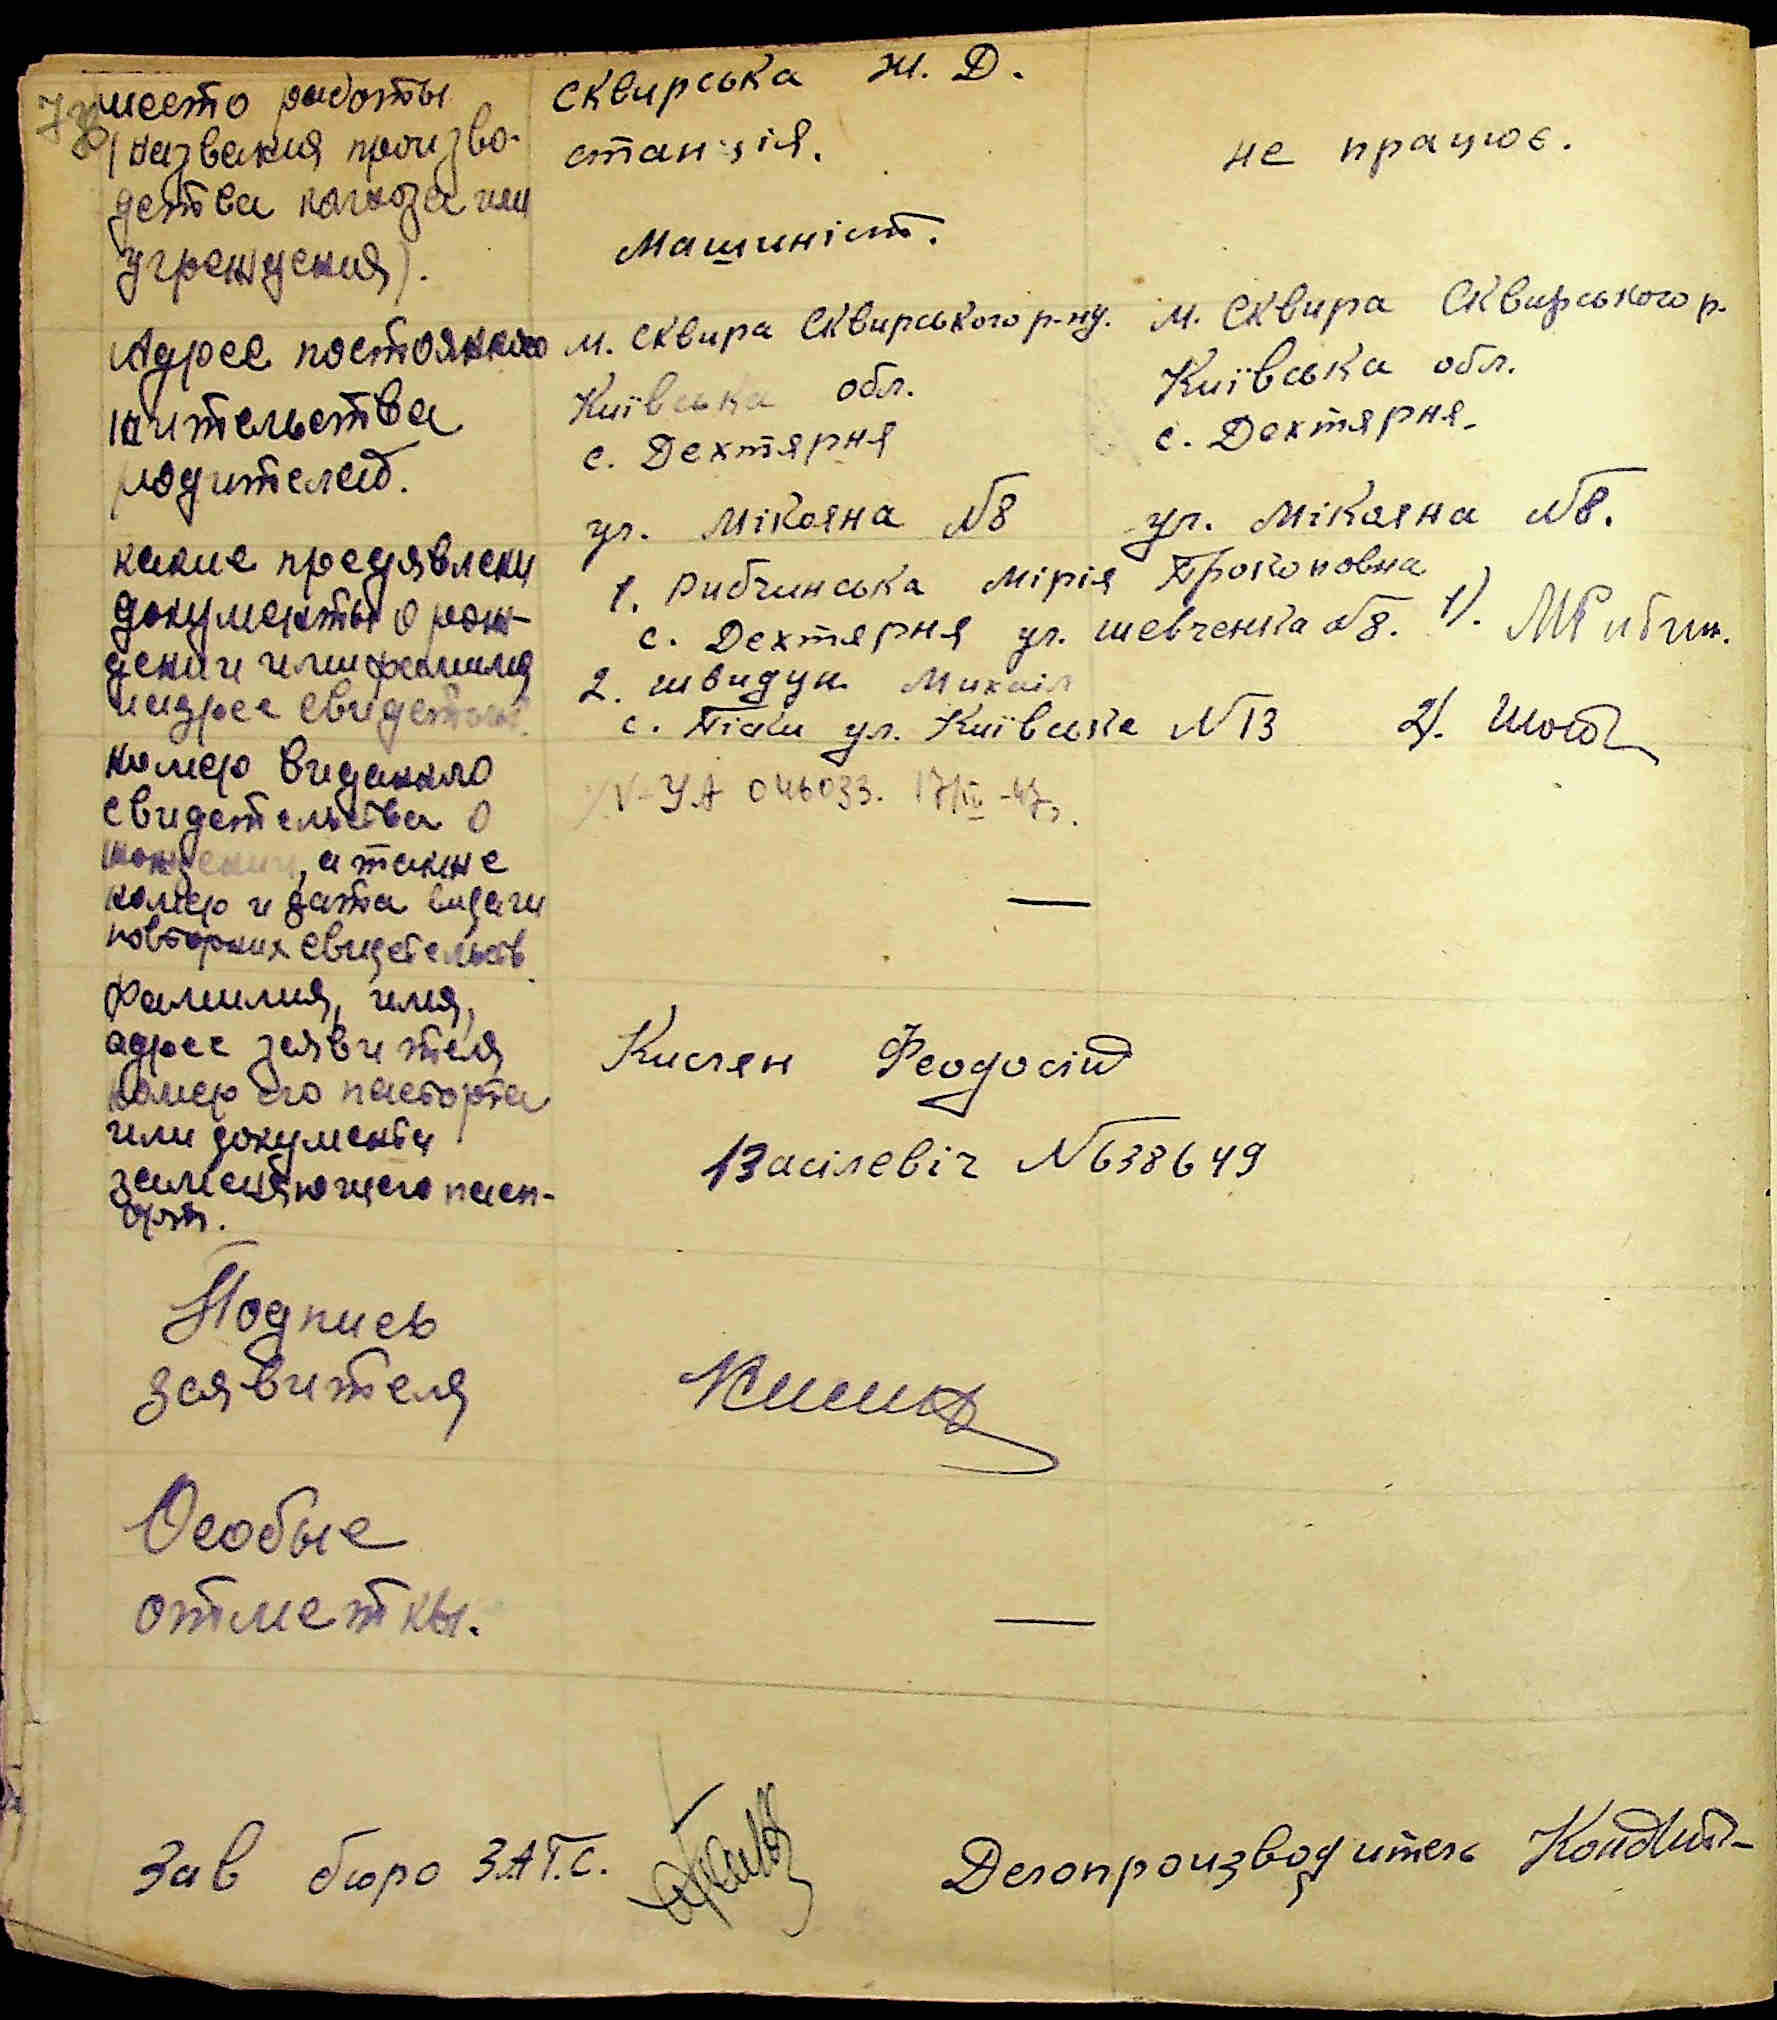 место работы
(название произво-
дства колхоза или
учреждения).
Сквирська Ж. Д.
станція.
Машиніст.
не працює.
Адрес постоянного
жительства
родителей.
м. Сквира Сквирського р-ну.
Київська обл.
с. Дехтярня
ул. Мікояна №8
м. Сквира Сквирського р.
Київська обл.
с. Дехтярня.
ул. Мікояна №8.
какие предявлены
документы о рож-
дении или фамилия
и адрес свидетелей.
1. Рибчинська Мірія Прокоповна
с. Дехтярня ул. Шевченка №8. 1).
2. Швидун Михаіл
с. Піски ул. Київська №13 2).
номер виданного
свидетельства о
рождении, а также
номер и дата видачи
повторних свидетельств
№ УА 046033. 17/IV-47г.
—
Фамилия, имя,
адрес заявителя
номер его паспорта
или документа
заменяющего пасп-
орт.
Кислян Феодосій
Васілевіч №638649
Подпись
заявителя
Особые
отметкы.
—
Зав бюро ЗАГС.
Делопроизводитель